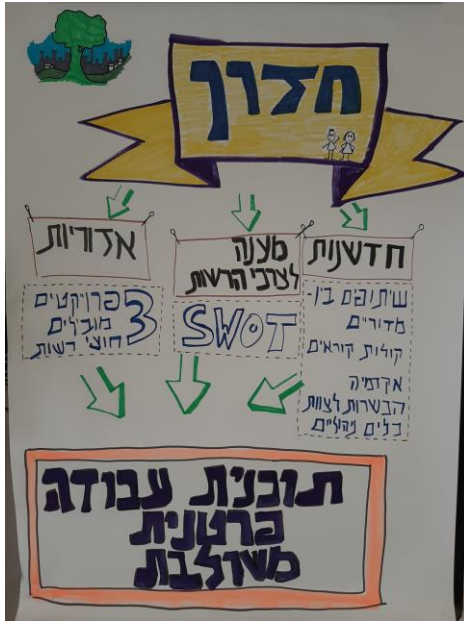 חדרך
חדשנות
שיתופים בין-
מדוריים
קולות קוראים
אקדמיה
הכשרות לצוות
כלים ניהוליים
מענה
לצרכי הרשות
SWOT
אזוריות
3 פרויקטים
מובילים
חוצי רשות
תוכנית עבודה
פרטנית
משולבת